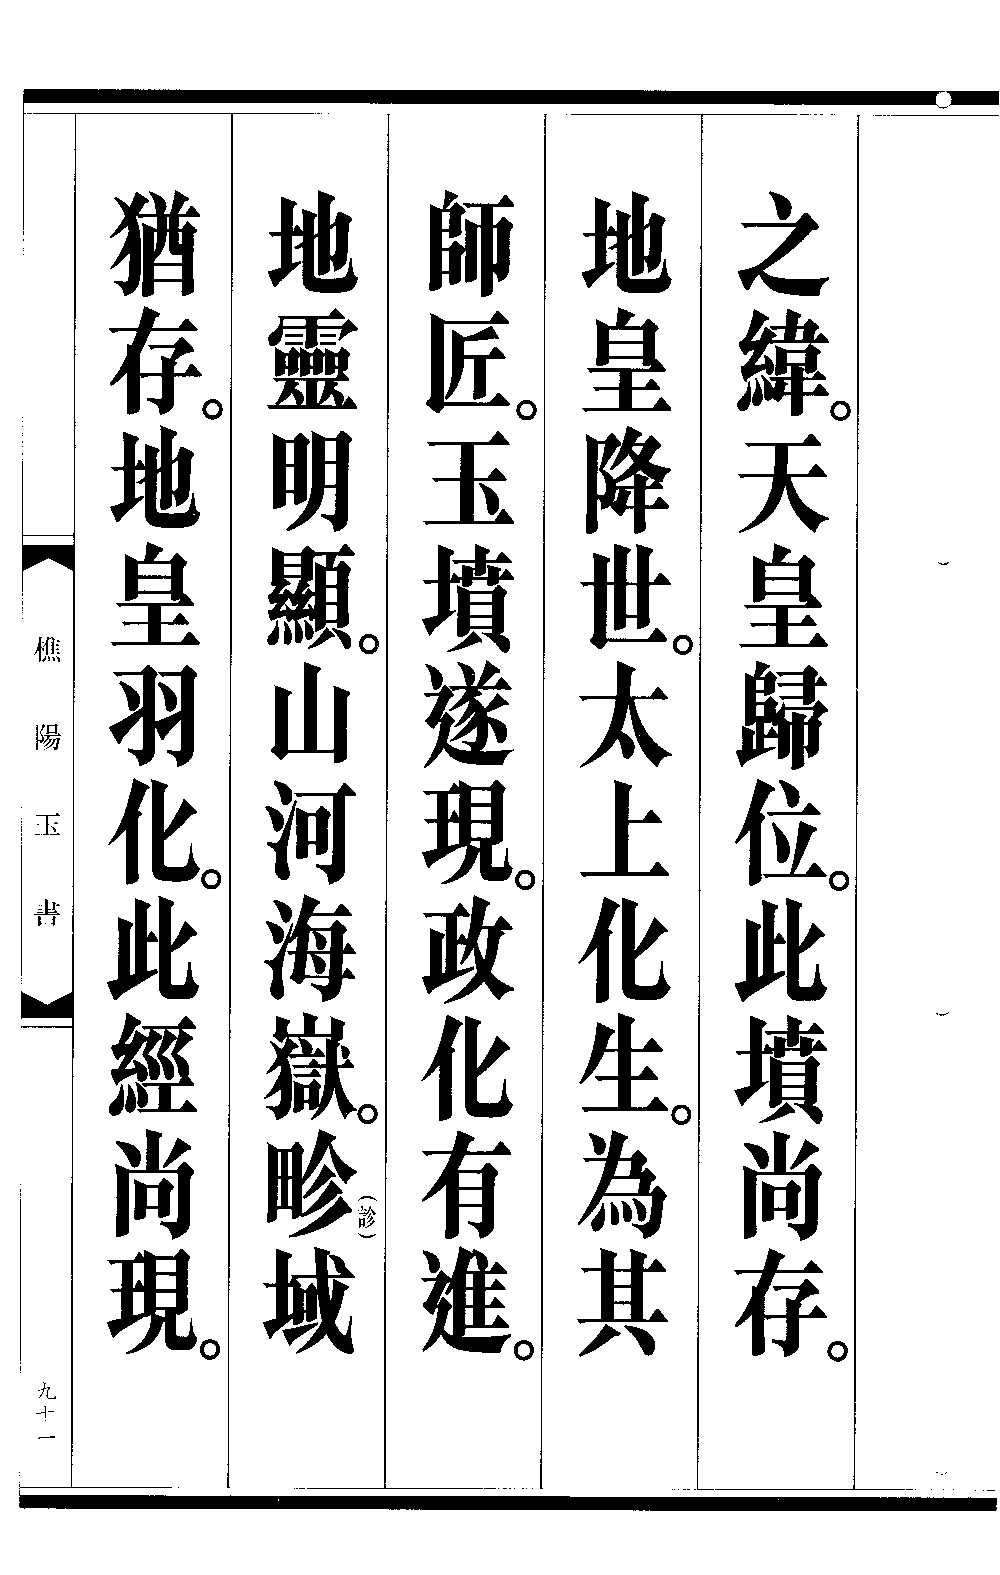 之緯。天皇歸位。此墳尚存。
地皇降世。太上化生。為其
師匠。玉墳遂現。政化有進。
地靈明顯。山河海嶽。畛(診)域
猶存。地皇羽化。此經尚現。
樵陽玉書
九十一